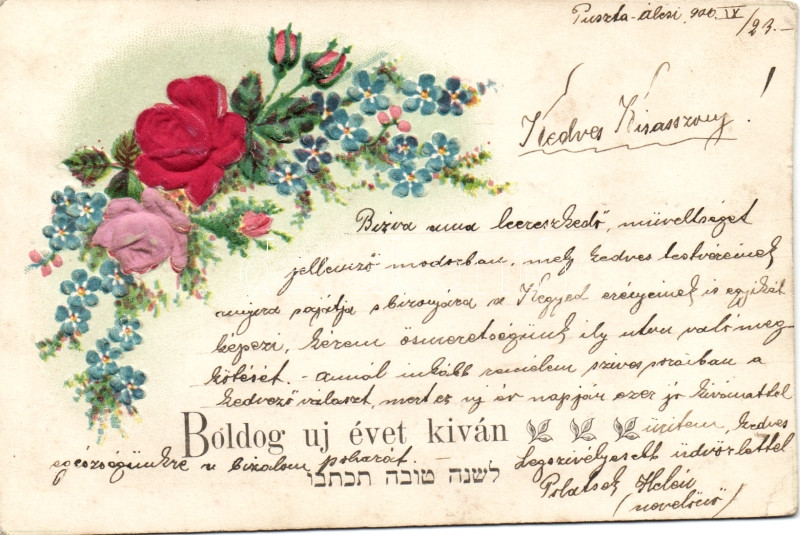 Puszta-álcsi, 900. IX/23.-
Kedves Kisasszony!
Bizva ama leereszkedő, műveltséget
jellemző modorban, mely kedves testvéreinek
annyira sajátja s bizonyára a Kegyed erényeinek is egyikét
képezi, kérem ösmeretségünk ily uton való meg-
kötését. - annál inkább remélem szives soraiban a
kedvező választ, mert es uj év napján ezer jó kivánattal
ürítem, kedves
egészségünkre a bizalom poharát. -
Boldog uj évet kiván
לשנה טובה תכתבו
Legszivélyesebb üdvözlettel
Polatsek Helén
(nevelőnő)